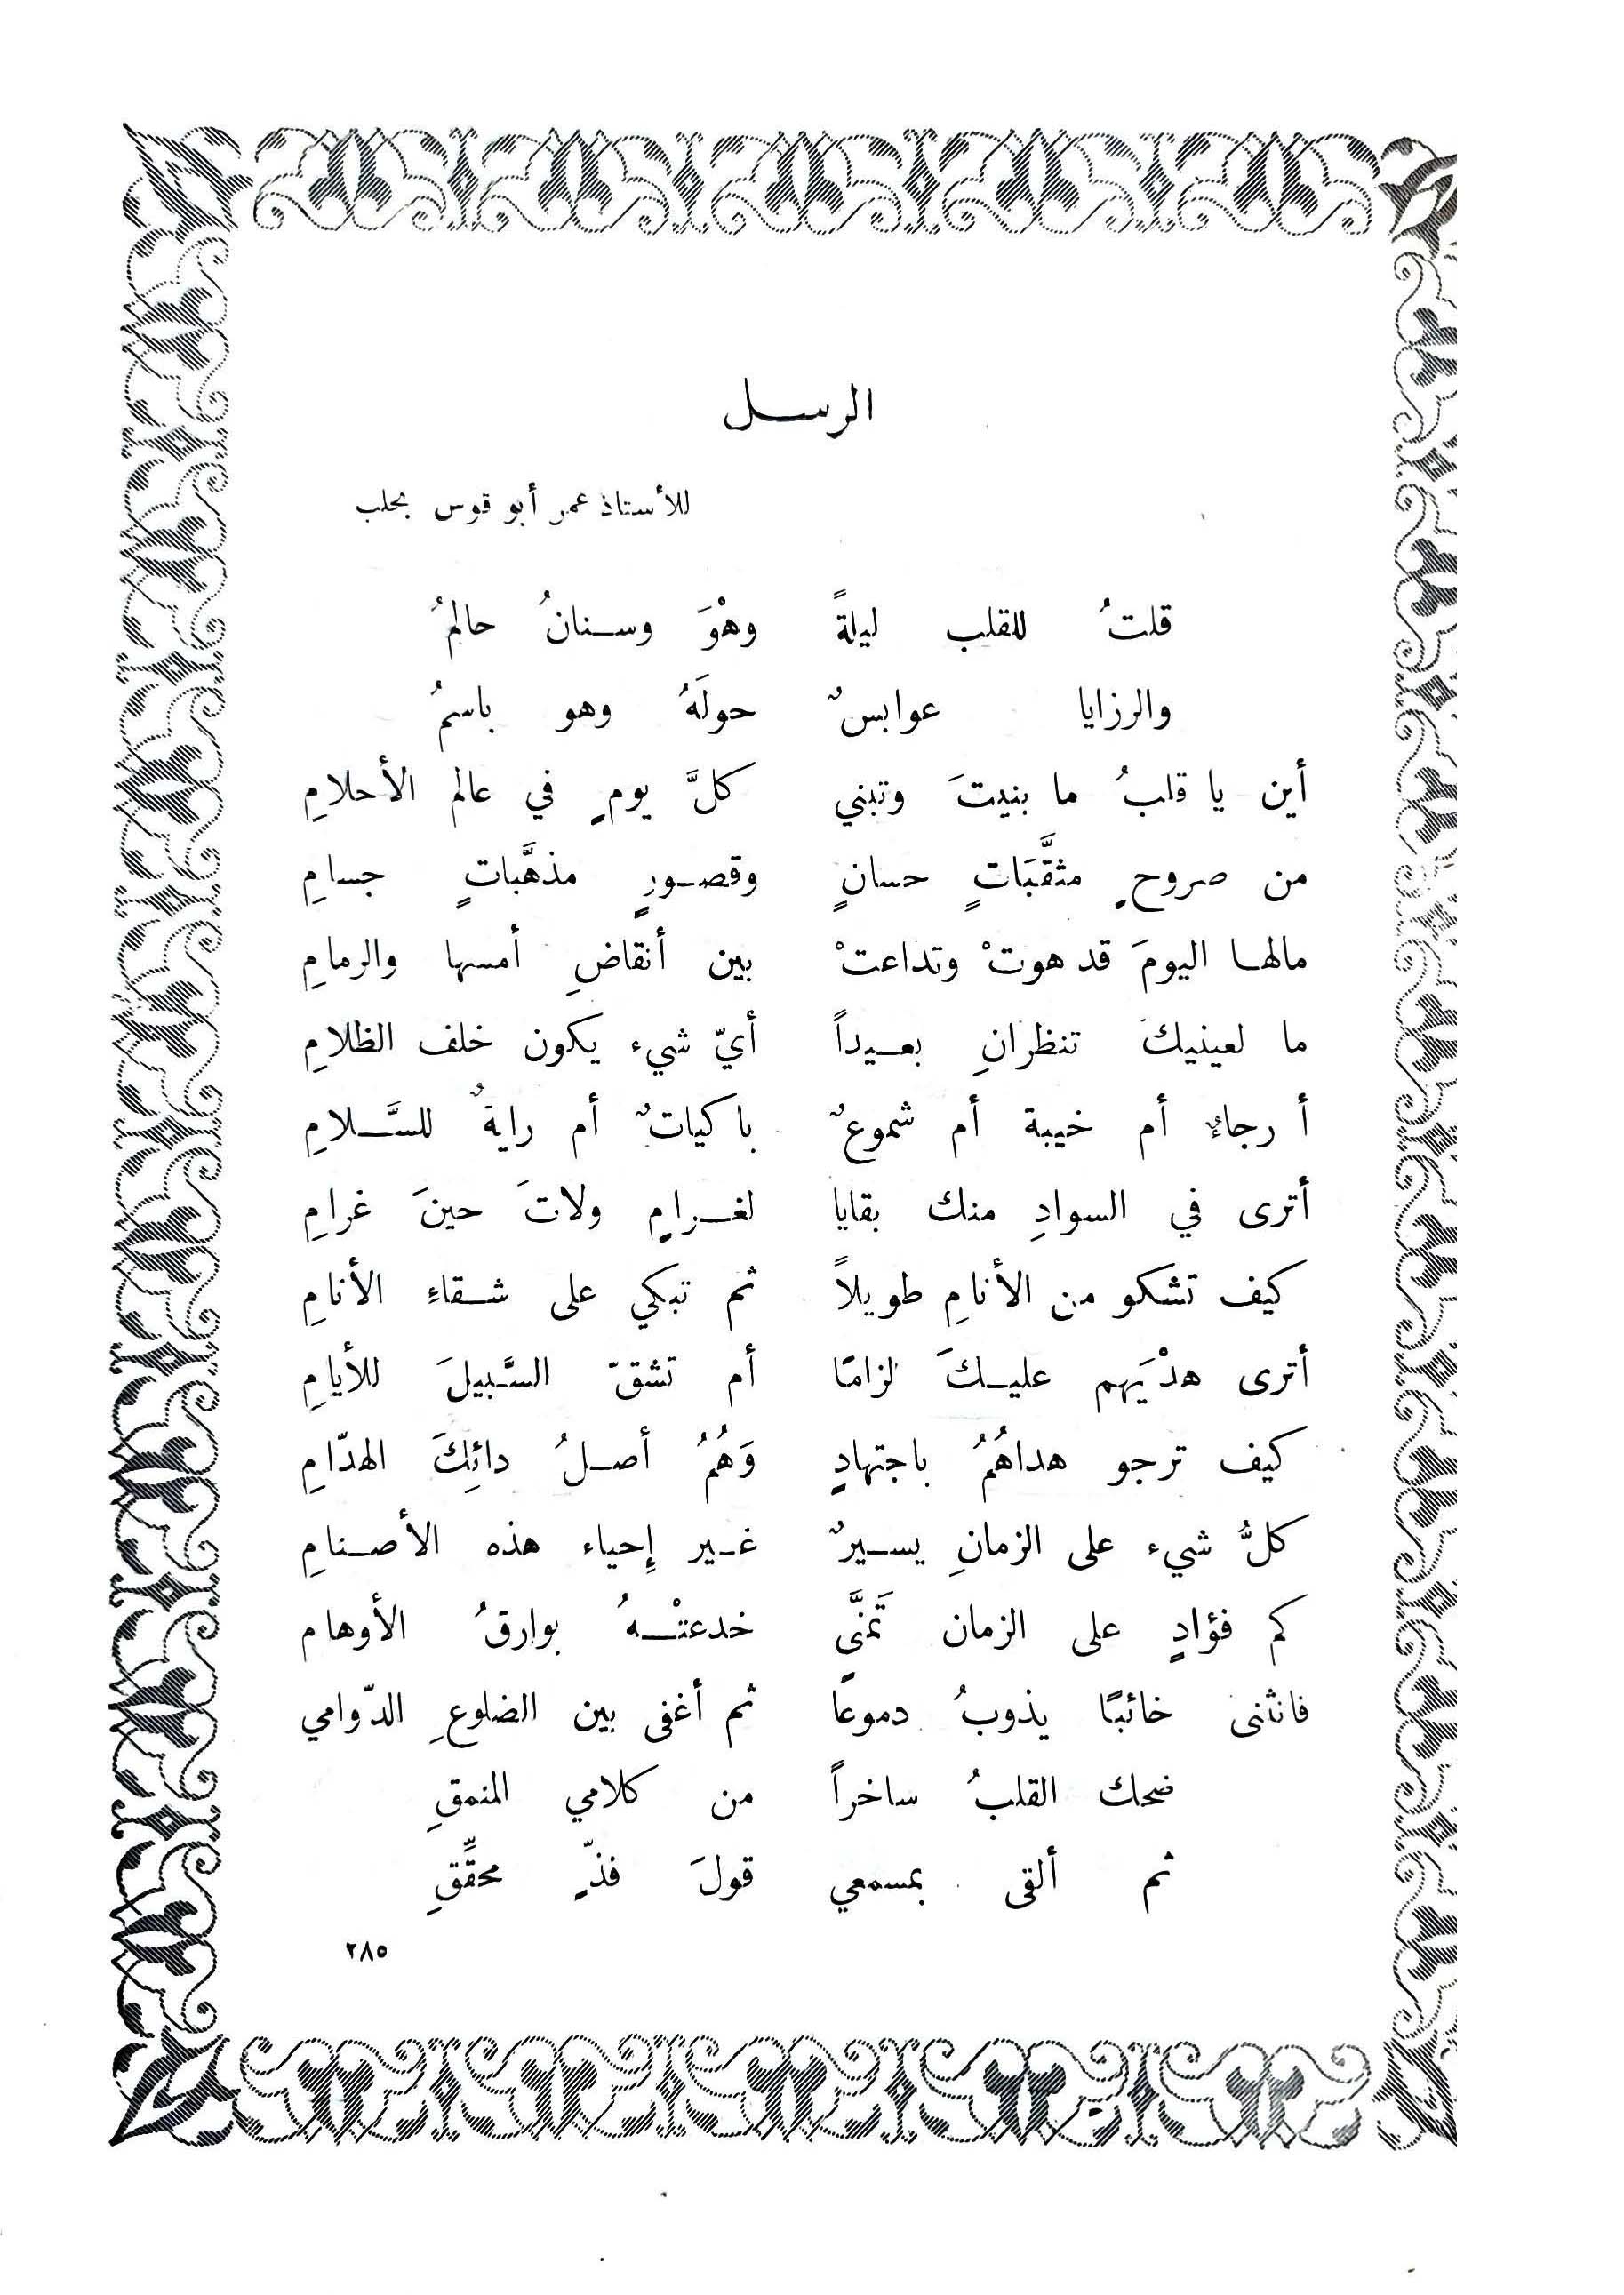 الرسل
للأستاذ عمر أبو قوس بحلب
قلتُ للقلب ليلةً وهْوَ وسنانُ حالمُ
والرزايا عوابسٌ حولَهُ وهو باسمُ
أين يا قلبُ ما بنيتَ وتبني كلَّ يومٍ في عالم الأحلامِ
من صروحٍ مثقَّبَاتٍ حسانٍ وقصورٍ مذهَّباتٍ جسامِ
مالها اليومَ قد هوتْ وتداعتْ بين أنقاضِ أمسها والرمامِ
ما لعينيك تنظرانِ بعيداً أيّ شيء يكون خلف الظلامِ
أ رجاءٌ أم خيبة أم شموعٌ باكياتٌ أم رايةٌ للسَّلامِ
أترى في السوادِ منك بقايا لغرامٍ ولاتَ حينَ غرامِ
كيف تشكو من الأنامِ طويلاً ثم تبكي على شقاءِ الأنامِ
أترى هدْيَهم عليكَ لزامًا أم تشقّ السَّبيلَ للأيامِ
كيف ترجو هداهُمُ باجتهادٍ وَهُمُ أصلُ دائِكَ الهدّامِ
كلُّ شيء على الزمانِ يسيرٌ غير إِحياء هذه الأصنامِ
كم فؤادٍ على الزمان تَمنَّى خدعتْهُ بوارقُ الأوهام
فانثنى خائبًا يذوبُ دموعًا ثم أغفى بين الضلوعِ الدّوامي
ضحك القلبُ ساخراً من كلامي المنمقِ
ثم ألقى بمسمعي قولَ فذٍّ محقِّقِ
٢٨٥